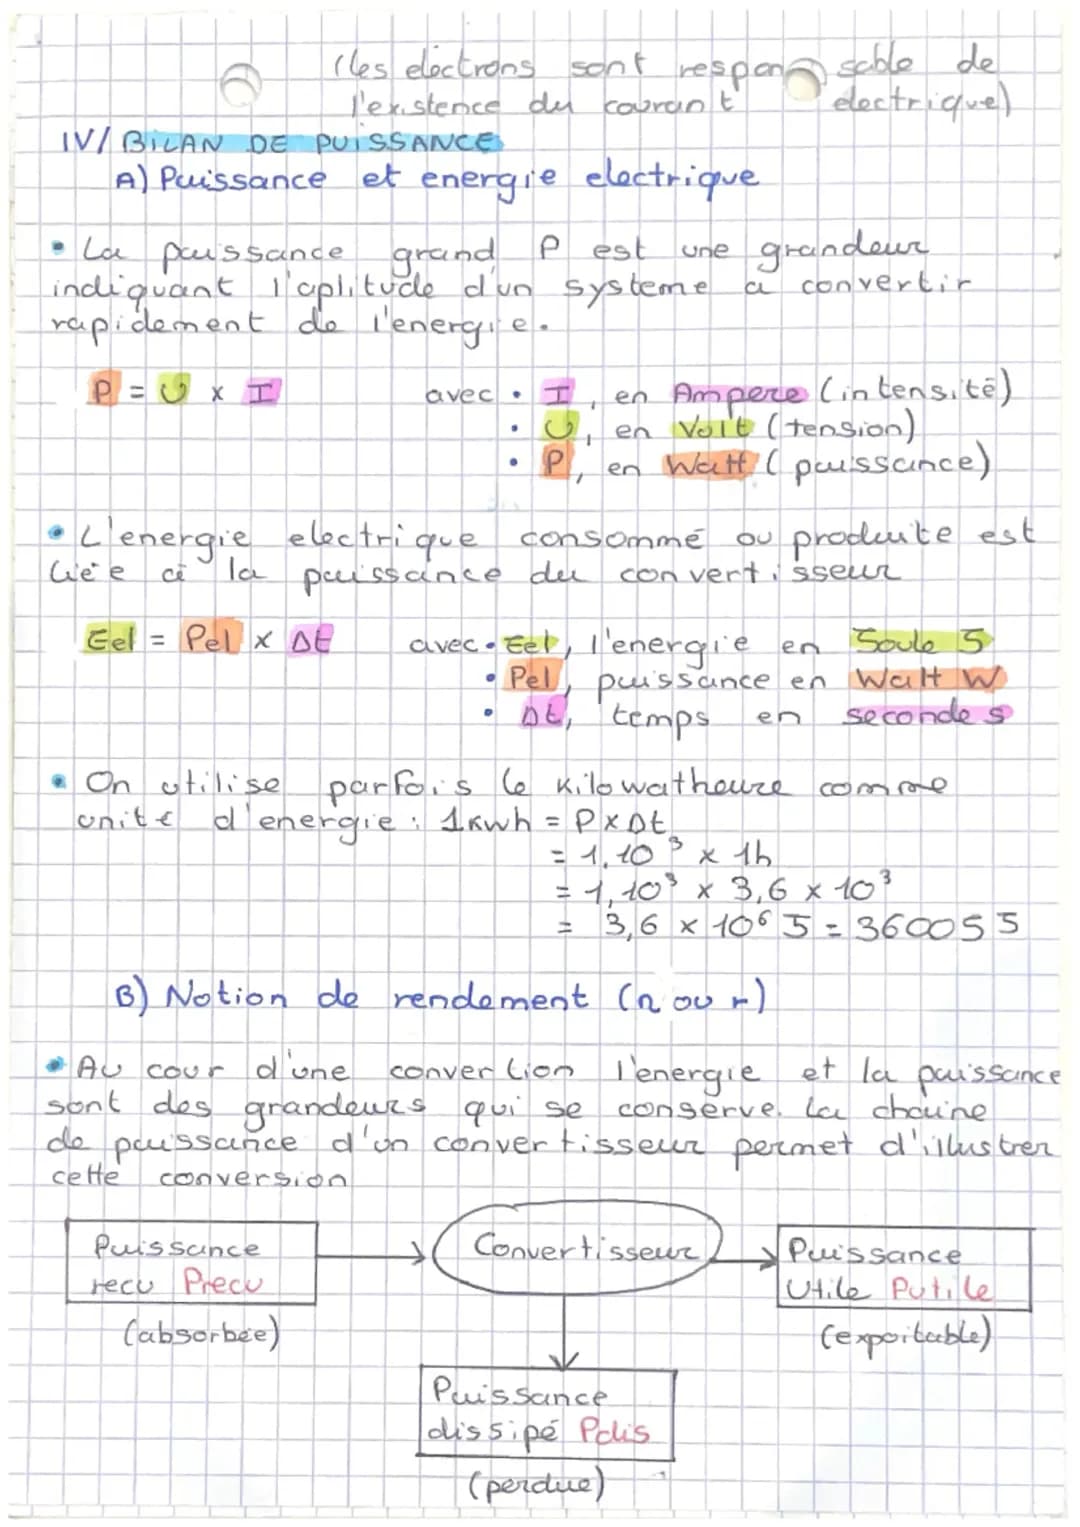 (les electrons sont responsable de
l'existence du courant electrique)
IV/ BILAN DE PUISSANCE
A) Puissance et energie electrique
• La puissance grand P est une grandeur
indiquant l'aplitude d'un systeme a convertir
rapidement de l'energie.
P = U x I avec • I, en Ampere (intensité)
• U, en Volt (tension)
• P, en Watt (puissance)
• L'energie electrique consommé ou produite est
liée à la puissance du convertisseur
Eel = Pel x Δt avec • Eel, l'energie en Joule J
• Pel, puissance en Watt W
• Δt, temps en seconde s
• On utilise parfois le kilowatheure comme
unité d'energie : 1kwh = P x Δt
= 1,10³ x 1h
= 1,10³ x 3,6 x 10³
= 3,6 x 10⁶ J = 36005 J
B) Notion de rendement (η ou r)
• Au cour d'une convertion l'energie et la puissance
sont des grandeurs qui se conserve. La chaine
de puissance d'un convertisseur permet d'illustrer
cette conversion
Puissance
recu Precu
(absorbée)
Convertisseur
Puissance
Utile Putile
(exploitable)
Puissance
dissipé Pdis
(perdue)